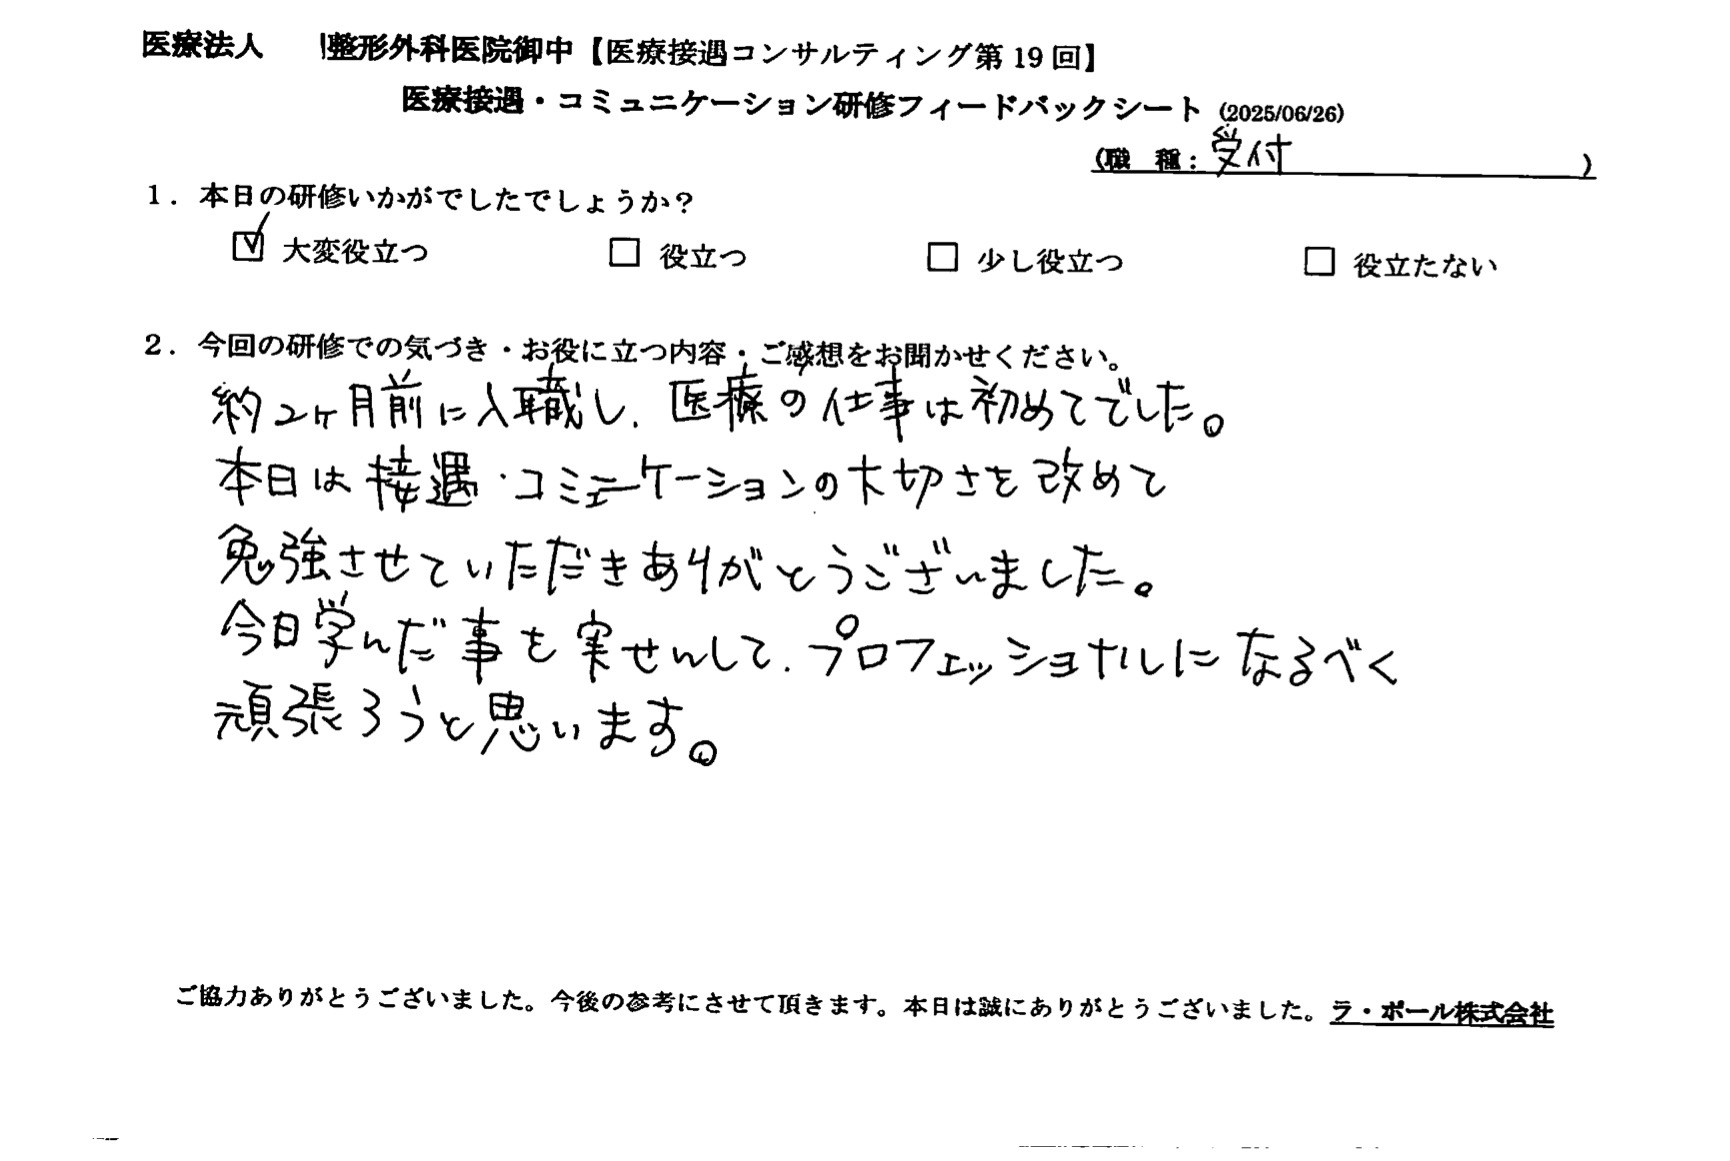 医療法人 整形外科医院御中【医療接遇コンサルティング第19回】
医療接遇・コミュニケーション研修フィードバックシート (2025/06/26)
(職 種: 受付 )
1. 本日の研修いかがでしたでしょうか?
☑ 大変役立つ □ 役立つ □ 少し役立つ □ 役立たない
2. 今回の研修での気づき・お役に立つ内容・ご感想をお聞かせください。
約2ヶ月前に入職し、医療の仕事は初めてでした。
本日は接遇・コミュニケーションの大切さを改めて
勉強させていただきありがとうございました。
今日学んだ事を実せんして、プロフェッショナルになるべく
頑張ろうと思います。
ご協力ありがとうございました。今後の参考にさせて頂きます。本日は誠にありがとうございました。ラ・ポール株式会社